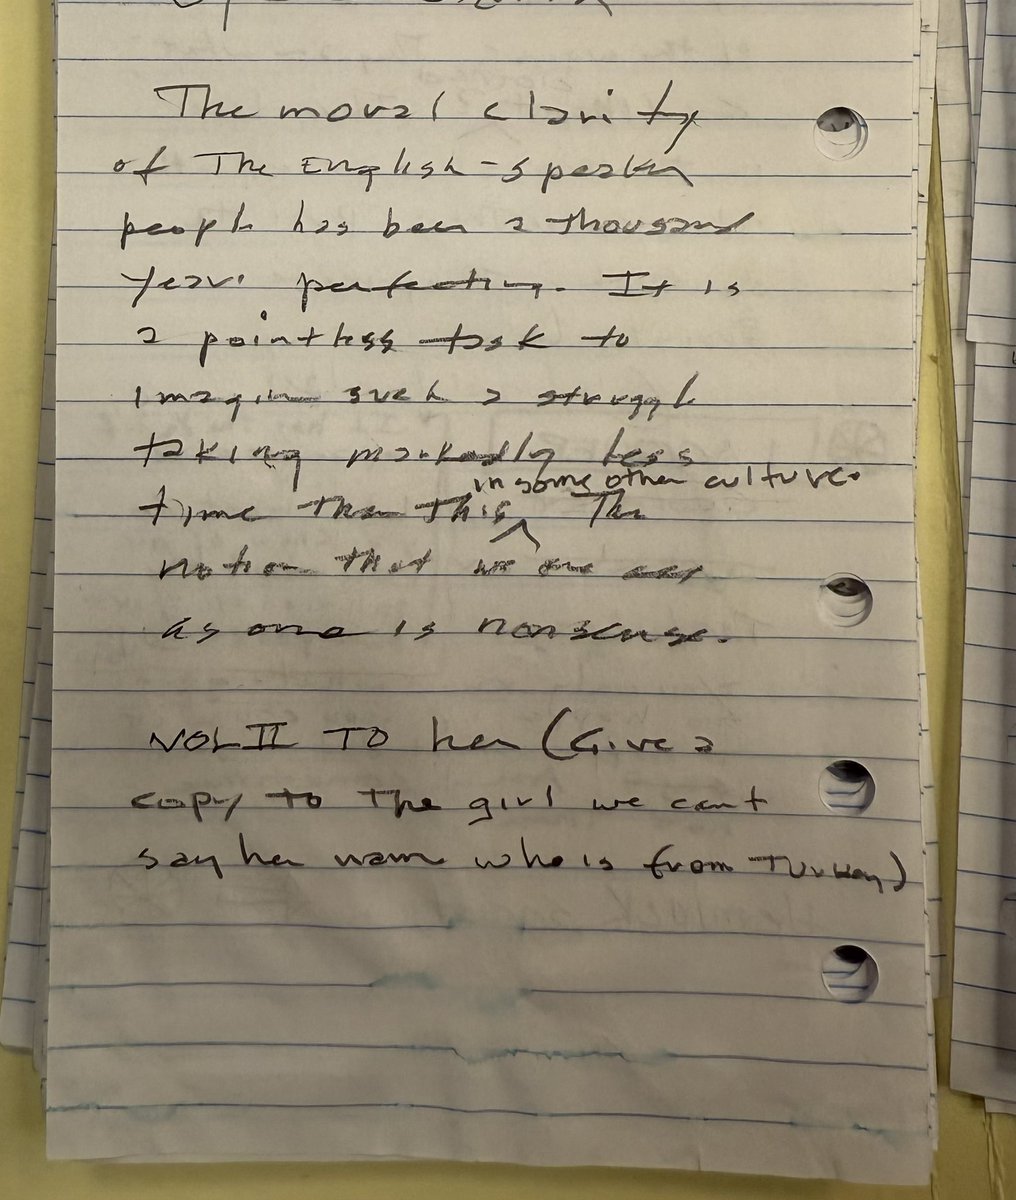 The moral clarity
of The English-speakin
people has been a thousand
years perfecting. It is
a pointless task to
imagine such a struggle
taking markedly less
in some other culture.
time than this ^ The
notion that we are all
as one is nonsense.
VOL II TO her (Give a
copy to the girl we cant
say her name who is from Turkey)